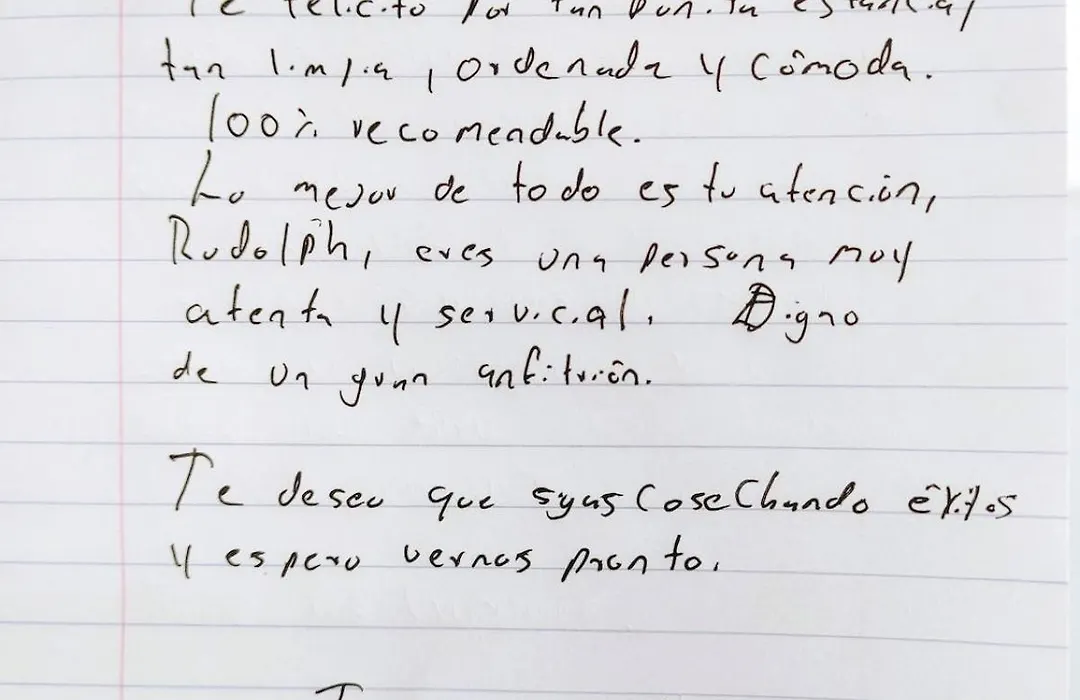 Te felicito por tan bonita estancia,
tan limpia, ordenada y cômoda.
100% recomendable.
Lo mejor de todo es tu atenciôn,
Rudolph, eres una persona muy
atenta y servicial. Digno
de un gran anfitriôn.
Te deseo que sigas CoseChando êxitos
y espero vernos pronto.